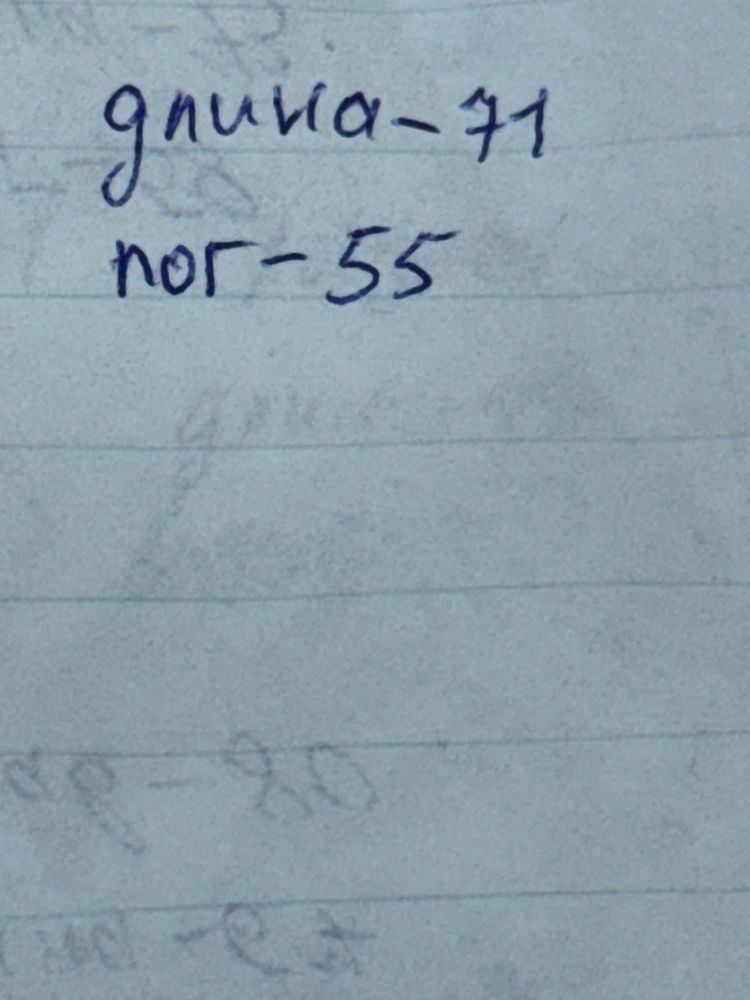 длина - 71
пог - 55